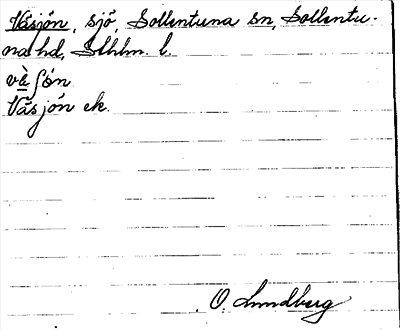 Väsjön, sjö, Sollentuna sn, Sollentu-
na hd, Sthlm. l.
vä̀ʃön
Väsjön ek.
O. Lundberg